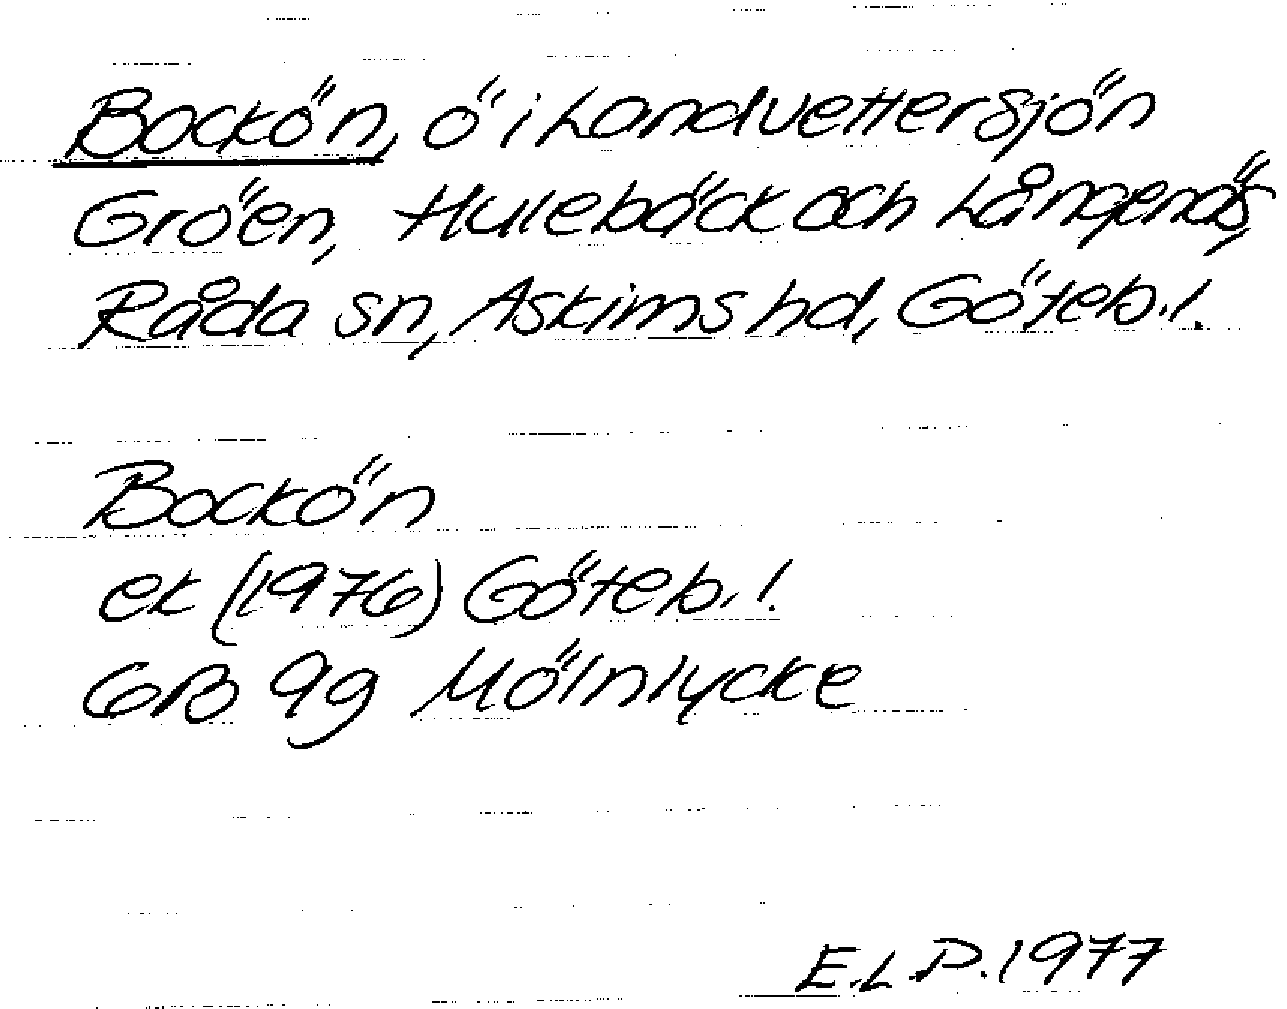 Bockön, ö i Landvettersjön
Gröen, Hulebäck och Långenäs,
Råda sn, Askims hd, Göteb.l.
Bockön
ek (1976) Göteb.l.
GB 9g Mölnlycke
E.L.P. 1977